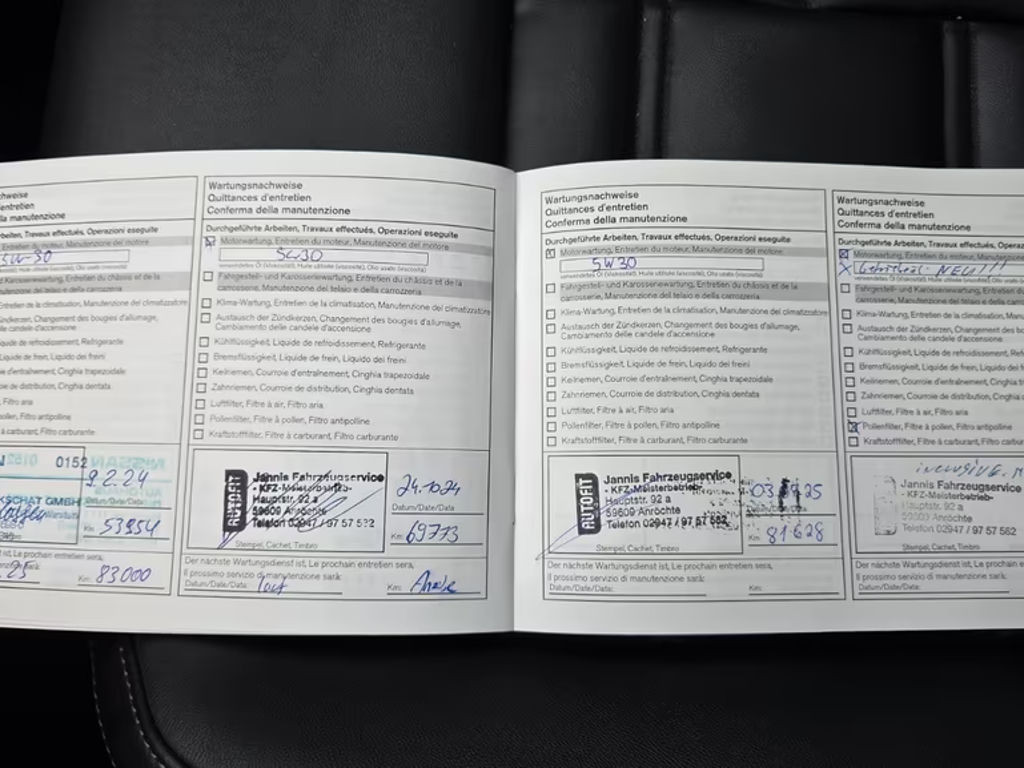 hweise
d'entretien
la manutenzione
rbeiten, Travaux effectués, Operazioni eseguite
Entretien du moteur, Manutenzione del motore
5W-30
verwendetes Öl (Viskosität), Huile utilisée (viscosité), Olio usato (viscosità)
d Karosseriewartung, Entretien du châssis et de la
Manutenzione del telaio e della carrozzeria
Entretien de la climatisation, Manutenzione del climatizzatore
ündkerzen, Changement des bougies d'allumage,
lle candele d'accensione
Liquide de refroidissement, Refrigerante
Liquide de frein, Liquido dei freini
d'entraînement, Cinghia trapezoidale
de distribution, Cinghia dentata
Filtro aria
pollen, Filtro antipolline
à carburant, Filtro carburante
0152
NISSAN
9.2.24
KSCHAT GMBH
Datum/Date/Data:
Km: 53954
ist, Le prochain entretien sera,
manutenzione sarà:
Km: 83000
Wartungsnachweise
Quittances d'entretien
Conferma della manutenzione
Durchgeführte Arbeiten, Travaux effectués, Operazioni eseguite
Motorwartung, Entretien du moteur, Manutenzione del motore
5W30
verwendetes Öl (Viskosität), Huile utilisée (viscosité), Olio usato (viscosità)
Fahrgestell- und Karosseriewartung, Entretien du châssis et de la
carrosserie, Manutenzione del telaio e della carrozzeria
Klima-Wartung, Entretien de la climatisation, Manutenzione del climatizzatore
Austausch der Zündkerzen, Changement des bougies d'allumage,
Cambiamento delle candele d'accensione
Kühlflüssigkeit, Liquide de refroidissement, Refrigerante
Bremsflüssigkeit, Liquide de frein, Liquido dei freini
Keilriemen, Courroie d'entraînement, Cinghia trapezoidale
Zahnriemen, Courroie de distribution, Cinghia dentata
Luftfilter, Filtre à air, Filtro aria
Pollenfilter, Filtre à pollen, Filtro antipolline
Kraftstofffilter, Filtre à carburant, Filtro carburante
AUTOFIT
Jannis Fahrzeugservice
- KFZ-Meisterbetrieb-
Hauptstr. 92 a
59609 Anröchte
Telefon 02947 / 97 57 582
Stempel, Cachet, Timbro
24.10.24
Datum/Date/Data:
Km: 69773
Der nächste Wartungsdienst ist, Le prochain entretien sera,
Il prossimo servizio di manutenzione sarà:
Datum/Date/Data: laut
Km: Anzeige
Wartungsnachweise
Quittances d'entretien
Conferma della manutenzione
Durchgeführte Arbeiten, Travaux effectués, Operazioni eseguite
Motorwartung, Entretien du moteur, Manutenzione del motore
5W30
verwendetes Öl (Viskosität), Huile utilisée (viscosité), Olio usato (viscosità)
Fahrgestell- und Karosseriewartung, Entretien du châssis et de la
carrosserie, Manutenzione del telaio e della carrozzeria
Klima-Wartung, Entretien de la climatisation, Manutenzione del climatizzatore
Austausch der Zündkerzen, Changement des bougies d'allumage,
Cambiamento delle candele d'accensione
Kühlflüssigkeit, Liquide de refroidissement, Refrigerante
Bremsflüssigkeit, Liquide de frein, Liquido dei freini
Keilriemen, Courroie d'entraînement, Cinghia trapezoidale
Zahnriemen, Courroie de distribution, Cinghia dentata
Luftfilter, Filtre à air, Filtro aria
Pollenfilter, Filtre à pollen, Filtro antipolline
Kraftstofffilter, Filtre à carburant, Filtro carburante
AUTOFIT
Jannis Fahrzeugservice
- KFZ-Meisterbetrieb-
Hauptstr. 92 a
59609 Anröchte
Telefon 02947 / 97 57 582
Stempel, Cachet, Timbro
Km: 81628
Der nächste Wartungsdienst ist, Le prochain entretien sera,
Il prossimo servizio di manutenzione sarà:
Datum/Date/Data:
Km:
Wartungsnachweise
Quittances d'entretien
Conferma della manutenzione
Durchgeführte Arbeiten, Travaux effectués, Opera
Motorwartung, Entretien du moteur, Manutenzion
NEU!!!
verwendetes Öl (Viskosität), Huile utilisée (viscosité), Olio usato
Fahrgestell- und Karosseriewartung, Entretien d
carrosserie, Manutenzione del telaio e della carro
Klima-Wartung, Entretien de la climatisation, M
Austausch der Zündkerzen, Changement des bo
Cambiamento delle candele d'accensione
Kühlflüssigkeit, Liquide de refroidissement, Re
Bremsflüssigkeit, Liquide de frein, Liquido dei
Keilriemen, Courroie d'entraînement, Cinghia
Zahnriemen, Courroie de distribution, Cinghia
Luftfilter, Filtre à air, Filtro aria
Pollenfilter, Filtre à pollen, Filtro antipolline
Kraftstofffilter, Filtre à carburant, Filtro carbur
inclusive
Jannis Fahrzeugservice
- KFZ-Meisterbetrieb-
Hauptstr. 92 a
59609 Anröchte
Telefon 02947 / 97 57 582
Stempel, Cachet, Timbro
Der nächste Wartungsdienst ist, Le prochain e
Il prossimo servizio di manutenzione sarà:
Datum/Date/Data: